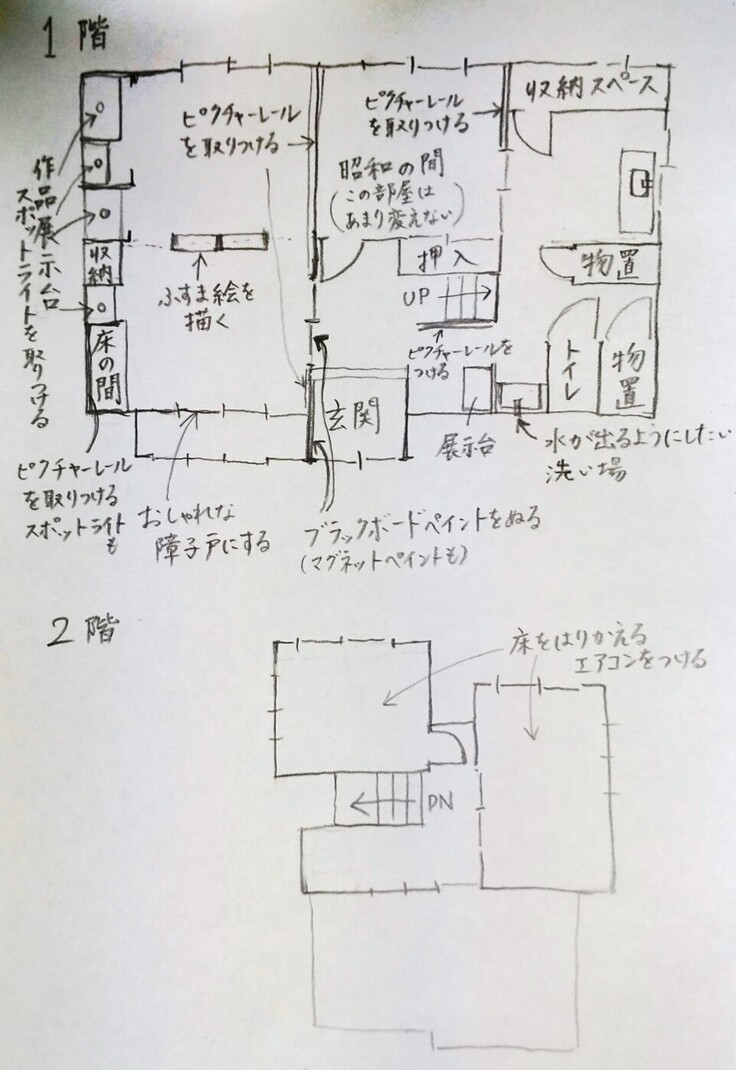 1階
ピクチャーレール
を取りつける
ピクチャーレール
を取りつける
収納スペース
昭和の間
(この部屋は
あまり変えない)
作品展示台
スポットライトを取りつける
収納
床の間
ふすま絵を
描く
押入
UP
物置
ピクチャーレールを
つける
トイレ
物置
玄関
展示台
水が出るようにしたい
洗い場
ピクチャーレール
を取りつける
スポットライト
も
おしゃれな
障子戸にする
ブラックボードペイントをぬる
(マグネットペイントも)
2階
床をはりかえる
エアコンをつける
DN